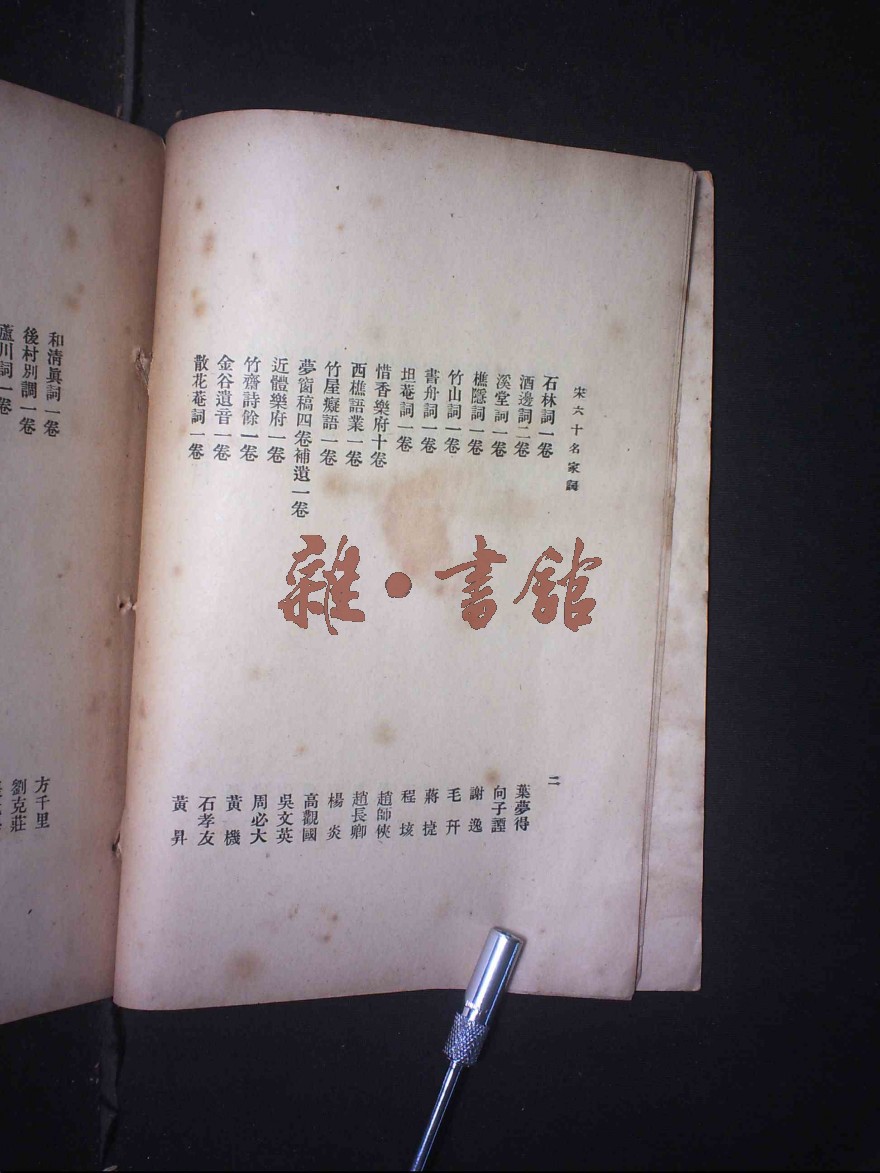 宋六十名家詞
二
石林詞一卷
葉夢得
酒邊詞二卷
向子諲
溪堂詞一卷
謝逸
樵隱詞一卷
毛幵
竹山詞一卷
蔣捷
書舟詞一卷
程垓
坦菴詞一卷
趙師俠
惜香樂府十卷
趙長卿
西樵語業一卷
楊炎
竹屋癡語一卷
高觀國
夢窗稿四卷補遺一卷
吳文英
近體樂府一卷
周必大
竹齋詩餘一卷
黃機
金谷遺音一卷
石孝友
散花菴詞一卷
黃昇
和清眞詞一卷
方千里
後村別調一卷
劉克莊
蘆川詞一卷
雜·書館